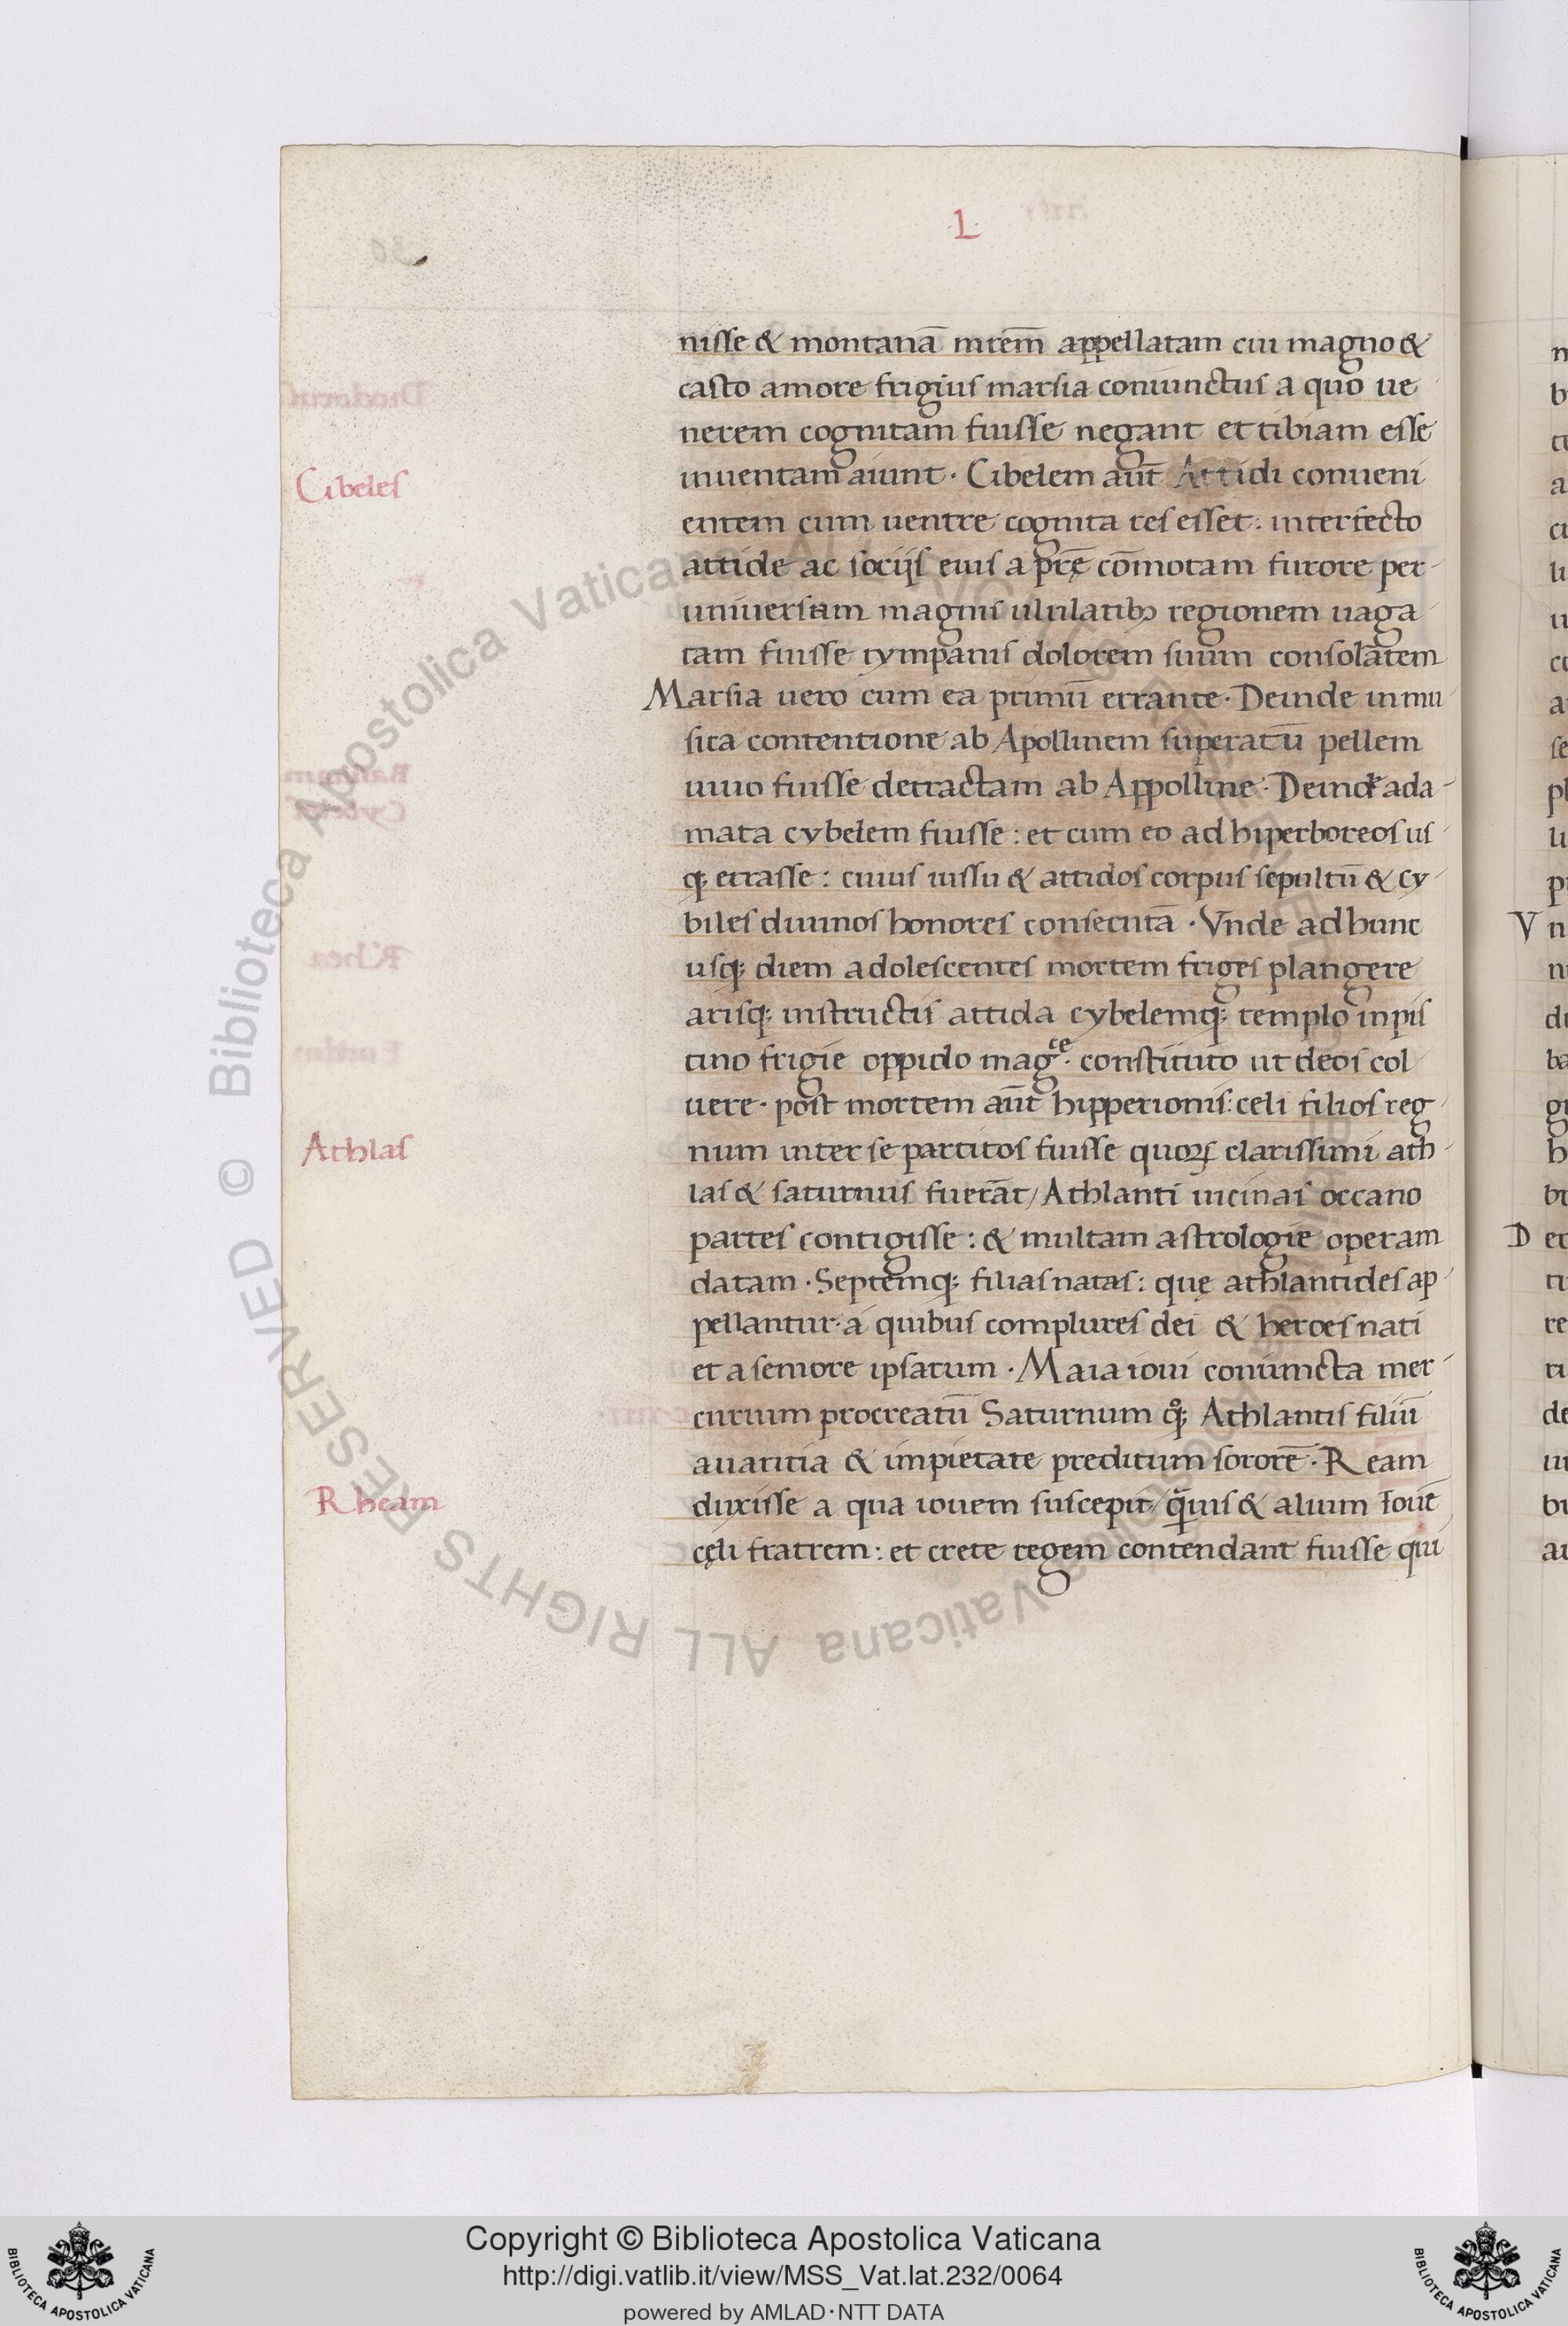 L
nisse & montanā mrem̄ appellatam cui magno &
casto amore frigius marsia coniunctus a quo ue
nerem cognitam fuisse negant et tibiam esse
Cibeles
inuentam aiunt · Cibelem aūt Attidi conueni
entem cum uentre cognita res esset : interfecto
attide ac socijs eius a prē cōmotam furore per
uniuersam magnis ululatibꝫ regionem uaga
tam fuisse tympanis dolorem suum consolātem
Marsia uero cum ea primū errante · Deinde in mu
sica contentione ab Apollinem superatū pellem
uiuo fuisse detractam ab Appolline · Deinde ada
mata cybelem fuisse : et cum eo ad hiperboreos us
qꝫ errasse : cuius iussu & attidos corpus sepultū & cy
biles diuinos honores consecutā · Vnde ad hunc
usqꝫ diem adolescentes mortem friges plangere
arisqꝫ instructis attida cybelemqꝫ templo in pis
tino frigie oppido mag ce · constituto ut deos col
uere · post mortem aūt hipperionis : celi filios reg
Athlas
num inter se partitos fuisse quoꝝ clarissimi ath
las & saturnus fuerāt / Athlanti uicinas occano
partes contigisse : & multam astrologie operam
datam · Septemqꝫ filias natas : quę athlantides ap
pellantur · a quibus complures dei & heroes nati
et a seniore ipsarum · Maia ioui coniuncta mer
curium procreatū Saturnum qꝫ Athlantis filiū
auaritia & impietate preditum sororē · Ream
Rheam
duxisse a qua iouem suscepit / quis & alium Iouē
cęli fratrem : et crete regem contendant fuisse qui
Copyright © Biblioteca Apostolica Vaticana
http://digi.vatlib.it/view/MSS_Vat.lat.232/0064
powered by AMLAD·NTT DATA
BIBLIOTECA APOSTOLICA VATICANA
BIBLIOTECA APOSTOLICA VATICANA
© Biblioteca Apostolica Vaticana ALL RIGHTS RESERVED